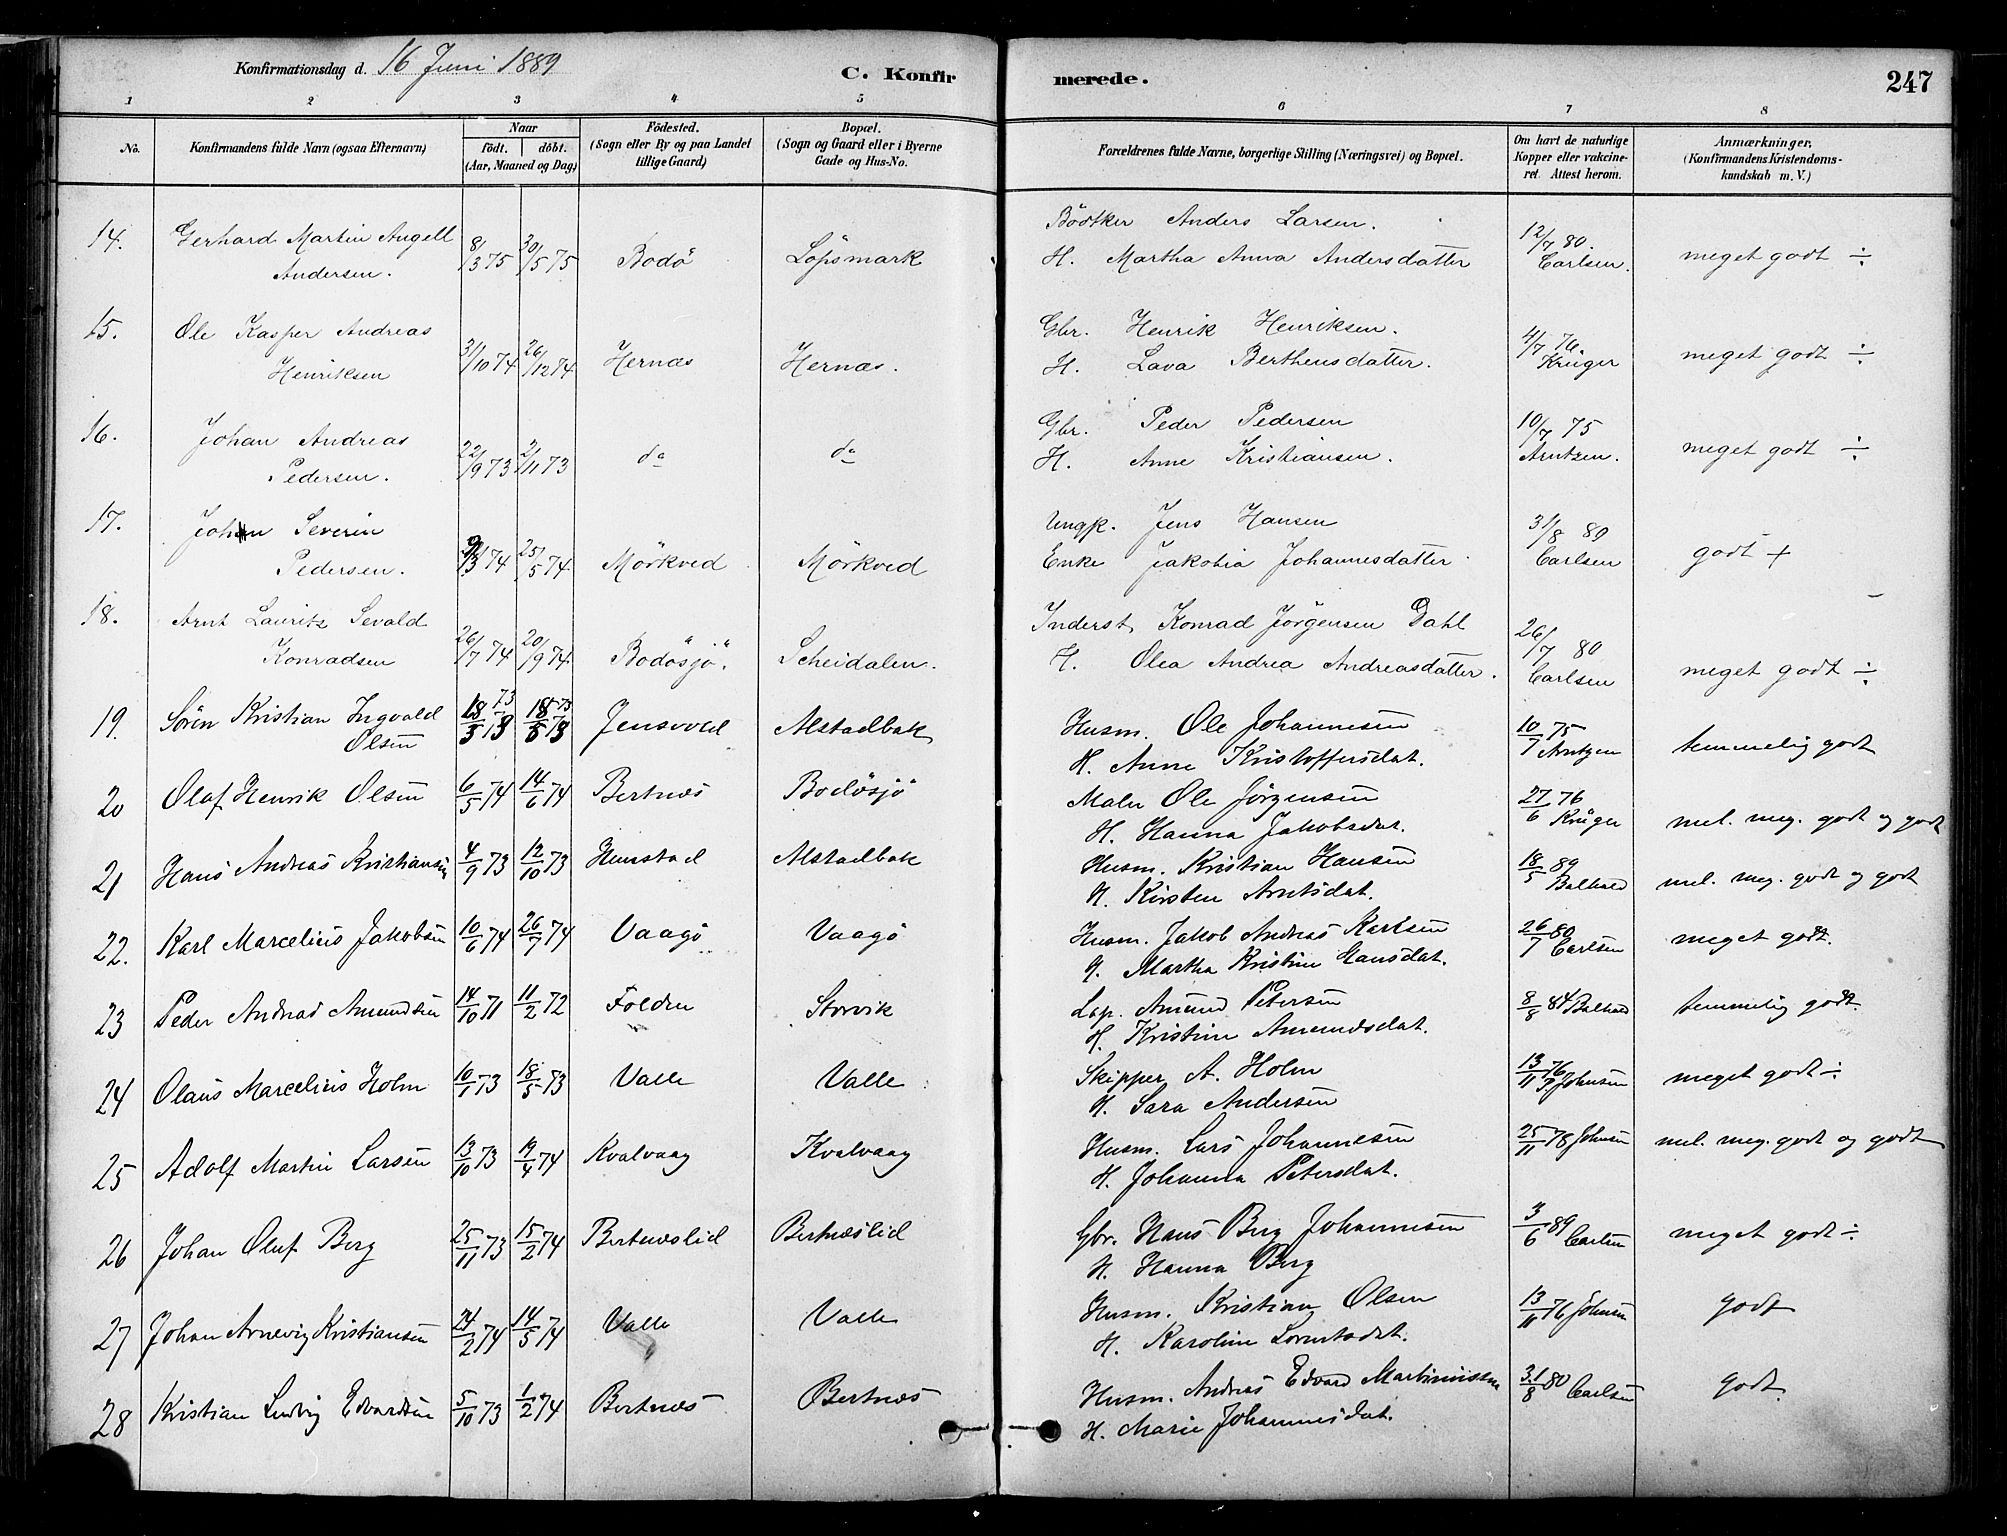 Konfirmationsdag d. 16 Juni 1889
C. Konfir merede. 247
1 2 3 4 5 6 7 8
No. Konfirmandens fulde Navn (ogsaa Efternavn) Naar födt. döbt. (Aar, Maaned og Dag) Födested. (Sogn eller By og paa Landet tillige Gaard) Bopæl. (Sogn og Gaard eller i Byerne Gade og Hus-No. Forældrenes fulde Navne, borgerlige Stilling (Næringsvei) og Bopæl. Om havt de naturlige Kopper eller vakcineret. Attest herom. Anmærkninger, (Konfirmandens Kristendomskundskab m. V.)
14. Gerhard Martin Angell Bödtker Anders Larsen.
Andersen. 8/3 75 30/5 75 Bodö Löpsmark H. Martha Anna Andersdatter 12/7 80. Carlsen. meget godt ÷
15. Ole Kasper Andreas Gbr. Henrik Henriksen.
Henriksen 31/10 74 26/12 74 Hernæs Hernæs. H. Lava Berthensdatter. 4/7 76. Krüger meget godt ÷
16. Johan Andreas Gbr. Peder Pedersen
Pedersen. 22/9 73 2/11 73 do do H. Anne Kristiansen. 10/7 75 Arntzen. meget godt ÷
17. Johan Severin Ungk. Jens Hansen
Pedersen. 9/3 74 25/5 74 Mörkved Mörkved Enke Jakobia Johannesdatter 31/8 80 Carlsen godt +
18. Arnt Lauritz Sevald Inderst. Konrad Jörgensen Dahl
Konradsen 26/7 74 20/9 74 Bodösjö. Scheidalen. H. Olea Andrea Andreasdatter. 26/7 80 Carlsen meget godt ÷
19. Sören Kristian Ingvald 73 73 Jensvold Alstadbak Husm. Ole Johannesen 10/7 75 Arntzen temmelig godt
Olsen H. Anne Kristoffersdat.
20 Olaf Henrik Olsen 6/5 74 14/6 74 Bertnæs Bodösjö Maler Ole Jörgensen 27/6 76 Krüger mel. meg. godt og godt
H. Hanna Jakobsdat.
21 Hans Andreas Kristiansen 4/9 73 12/10 73 Hunstad Alstadbak Husm. Kristian Hansen 18/5 89 mel. meg. godt og godt
H. Kirsten Arntsdat.
22. Karl Marcelius Jakobsen 10/6 74 26/7 74 Vaagö Vaagö Husm. Jakob Andreas Karlsen 26/7 80 Carlsen meget godt.
H. Martha Kristine Hansdat.
23 Peder Andreas Amundsen 14/10 71 11/2 72 Folden Storvik Lap. Amund Petersen 8/8 84 temmelig godt.
H. Kristine Amundsdat.
24 Olaus Marcelius Holm 10/1 73 18/5 73 Valle Valle Skipper A. Holm 13/11 76 Johnsen meget godt ÷
H. Sara Andersen
25 Adolf Martin Larsen 13/10 73 19/4 74 Kvalvaag Kvalvaag Husm. Lars Johannesen 25/11 78 Johnsen mel. meg. godt og godt
H. Johanna Petersdat.
26 Johan Oluf Berg 25/11 73 15/2 74 Bertnæslid Bertnæslid Gbr. Hans Berg Johannesen 3/6 89 Carlsen meget godt ÷
H. Hanna Berg
27 Johan Arnevig Kristiansen 24/2 74 14/5 74 Valle Valle Husm. Kristian Olsen 13/11 76 Johnsen godt
H. Karoline
28 Kristian Ludvig Edvardsen 5/10 73 1/2 74 Bertnæs Bertnæs Husm. Andreas Edvard Martinussen 31/8 80 Carlsen godt
H. Marie Johannesdat.